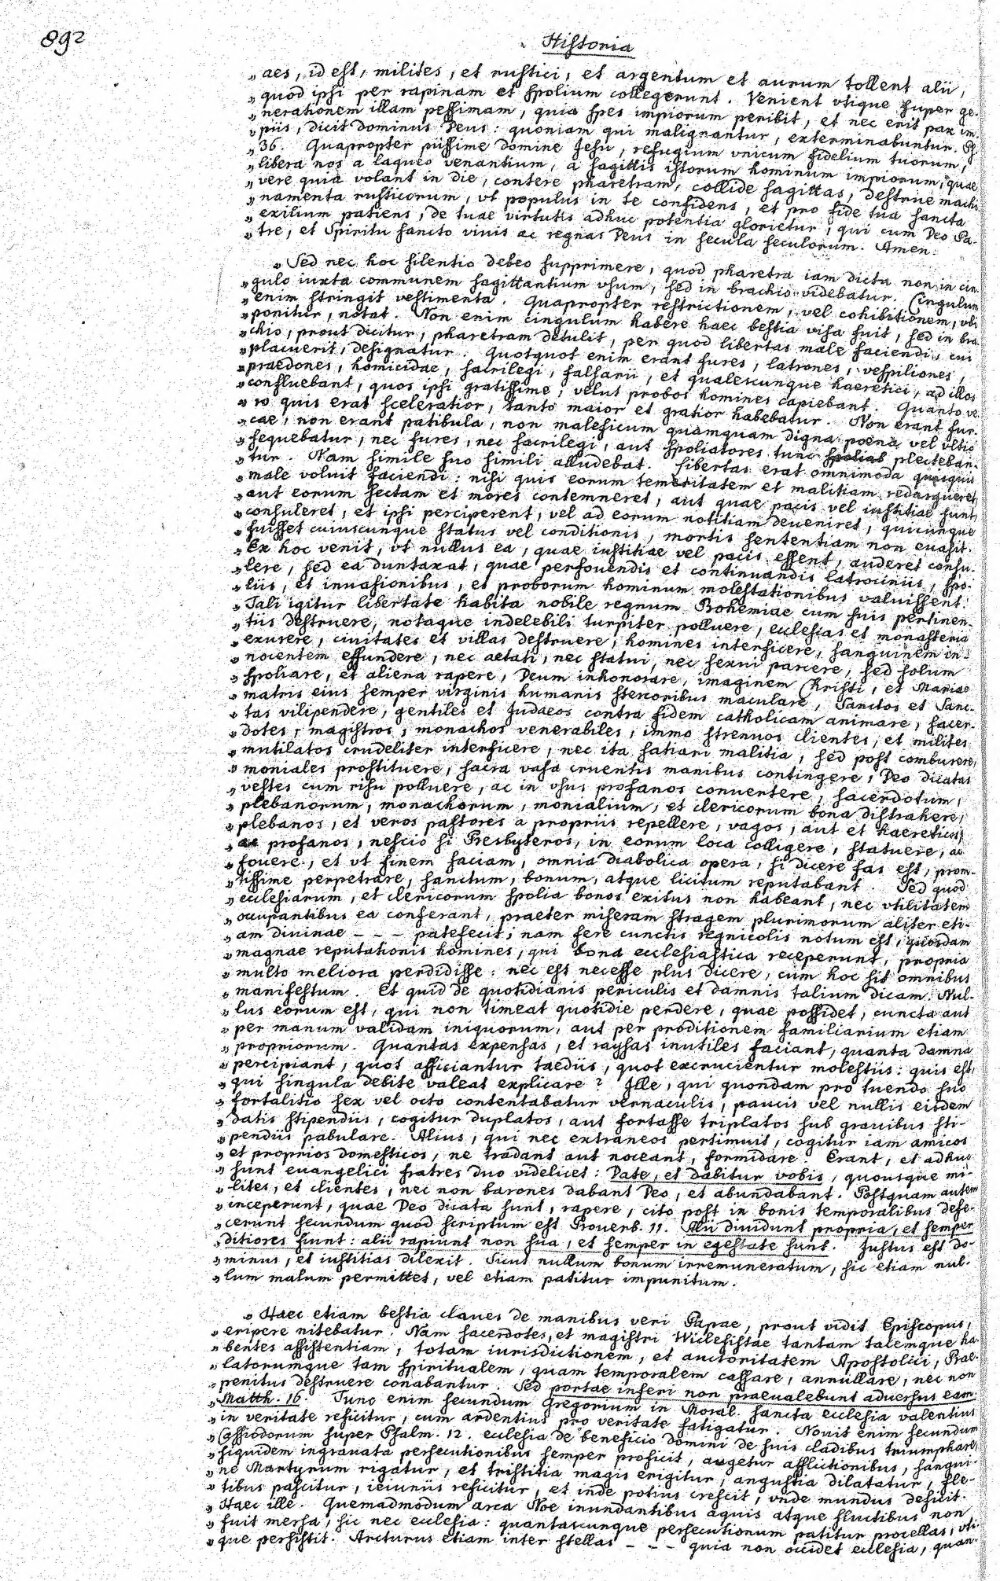 892
Historia
„ aes, id est, milites, et rustici, et argentum et aurum tollent alii,
„ quod ipsi per rapinam et spolium collegerunt. Venient vtique super ge-
„ nerationem illam pessimam, quia spes impiorum peribit, et nec erit pax im-
„ piis, dicit Dominus Deus: quoniam qui malignantur, exterminabuntur. Ps.
„ 36. Quapropter piissime Domine Jesu, refugium vnicum fidelium tuorum,
„ libera nos a laqueo venantium, a sagittis istorum hominum impiorum, quae
„ vere quia volant in die, contere pharetram, collide sagittas, destrue machi-
„ namenta rusticorum, vt populus in te confidens, et pro fide tua sancta
„ exilium patiens, de tuae virtutis adhuc potentia glorietur, qui cum Deo Pa-
„ tre, et Spiritu sancto viuis ac regnas Deus in secula seculorum. Amen.
„ Sed nec hoc silentio debeo supprimere, quod pharetra iam dicta non in cin-
„ gulo iuxta communem sagittantium vsum, sed in brachio videbatur. Cingulum
„ enim stringit vestimenta. Quapropter restrictionem, vel cohibitionem, vbi
„ ponitur, notat. Non enim cingulum habere haec bestia visa fuit, sed in bra-
„ chio, prout dicitur, pharetram detulit, per quod libertas male faciendi, cui
„ placuerit, designatur. Quotquot enim erant fures, latrones, vespiliones,
„ praedones, homicidae, sacrilegi, falsarii, et qualescunque haeretici, ad illos
„ confluebant, quos ipsi gratissime, velut probos homines capiebant. Quanto ve-
„ ro quis erat sceleratior, tanto maior et gratior habebatur. Non erant fur-
„ cae, non erant patibula, non maleficum quamquam digna poena vel vltio
„ sequebatur, nec fures, nec sacrilegi, aut spoliatores tunc plecteban-
„ tur. Nam simile suo simili alludebat. Libertas erat omnimoda quisquis
„ male voluit faciendi: nisi quis eorum temeritatem et malitiam redargueret,
„ aut eorum sectam et mores contemneret, aut quae pacis vel iustitiae sunt,
„ consuleret, et ipsi perciperent, vel ad eorum notitiam deueniret, quicunque
„ fuisset cuiuscunque status vel conditionis, mortis sententiam non euasit.
„ Ex hoc venit, vt nullus ea, quae iustitiae vel pacis essent, auderet consu-
„ lere, sed ea duntaxat, quae perfouendis et continuandis latrociniis, spo-
„ liis, et inuasionibus, et proborum hominum molestationibus valuissent.
„ Tali igitur libertate habita nobile regnum Bohemiae cum suis pertinen-
„ tiis destruere, notaque indelebili turpiter polluere, ecclesias et monasteria
„ exurere, ciuitates et villas destruere, homines interficere, sanguinem in-
„ nocentem effundere, nec aetati, nec statui, nec sexui parcere, sed solum
„ spoliare, et aliena rapere, Deum inhonorare, imaginem Christi, et Mariae
„ matris eius semper virginis humanis stercoribus maculare, Sanctos et Sanc-
„ tas vilipendere, gentiles et Judaeos contra fidem catholicam animare, sacer-
„ dotes, magistros, monachos venerabiles, immo strenuos clientes, et milites
„ mutilatos crudeliter interficere, nec ita satiari malitia, sed post comburere,
„ moniales prostituere, sacra vasa cruentis manibus contingere, Deo dicatas
„ vestes cum risu polluere, ac in vsus profanos conuertere, sacerdotum,
„ plebanorum, monachorum, monialium, et clericorum bona distrahere,
„ plebanos, et veros pastores a propriis repellere, vagos, aut et haereticos,
„ ac profanos, nescio si Presbyteros, in eorum loca colligere, statuere, ac
„ fouere, et vt finem faciam, omnia diabolica opera, si dicere fas est, prom-
„ tissime perpetrare, sanctum, bonum, atque licitum reputabant. Sed quod
„ ecclesiarum, et clericorum spolia bonos exitus non habeant, nec vtilitatem
„ occupantibus ea conferant, praeter miseram stragem plurimorum aliter eti-
„ am diuinae - - - patefecit; nam fere cunctis regnicolis notum est, quosdam
„ magnae reputationis homines, qui bona ecclesiastica receperunt, propria
„ multo meliora perdidisse: nec est necesse plus dicere, cum hoc sit omnibus
„ manifestum. Et quid de quotidianis periculis et damnis talium dicam. Nul-
„ lus eorum est, qui non timeat quotidie perdere, quae possidet, cuncta aut
„ per manum validam iniquorum, aut per proditionem familiarium etiam
„ propriorum. Quantas expensas, et raysas inutiles faciant, quanta damna
„ percipiant, quot afficiantur taediis, quot excrucientur molestiis: quis est,
„ qui singula debite valeat explicare? Ille, qui quondam pro tuendo suo
„ fortalitio sex vel octo contentabatur vernaculis, paucis vel nullis eisdem
„ datis stipendiis, cogitur duplatos, aut fortasse triplatos sub grauibus sti-
„ pendiis pabulare. Alius, qui nec extraneos pertimuit, cogitur iam amicos
„ et proprios domesticos, ne tradant aut noceant, formidare. Erant, et adhuc
„ sunt euangelici fratres duo videlicet: Date, et dabitur vobis, quousque mi-
„ lites, et clientes, nec non barones dabant Deo, et abundabant. Postquam autem
„ inceperunt, quae Deo dicata sunt, rapere, cito post in bonis temporalibus defe-
„ cerunt secundum quod scriptum est Prouerb. 11. Alii diuidunt propria, et semper
„ ditiores fiunt: alii rapiunt non sua, et semper in egestate sunt. Justus est do-
„ minus, et iustitias dilexit. Sicut nullum bonum irremuneratum, sic etiam nul-
„ lum malum permittet, vel etiam patitur impunitum.
„ Haec etiam bestia claues de manibus veri Papae, prout vidit Episcopus,
„ eripere nitebatur. Nam sacerdotes, et magistri Wiclefistae tantam talemque ha-
„ bentes assistentiam, totam iurisdictionem, et auctoritatem Apostolici, Prae-
„ latorumque tam spiritualem, quam temporalem cassare, annullare, nec non
„ penitus destruere conabantur. Sed portae inferi non praeualebunt aduersus eam
„ Matth. 16. Tunc enim secundum Gregorium in Moral. sancta ecclesia valentius
„ in veritate reficitur, cum ardentius pro veritate fatigatur. Nouit enim secundum
„ Cassiodorum super Psalm. 12. ecclesia de beneficio domini de suis cladibus triumphare,
„ siquidem ingrauata persecutionibus semper proficit, augetur afflictionibus, sangui-
„ ne Martyrum rigatur, et tristitia magis erigitur, angustia dilatatur, fle-
„ tibus pascitur, ieiuniis reficitur, et inde potius crescit, vnde mundus deficit.
„ Haec ille. Quemadmodum arca Noe inundantibus aquis atque fluctibus non
„ fuit mersa, sic nec ecclesia: quantascunque persecutionum patitur procellas, vti-
„ que persistit. Arcturus etiam inter stellas - - - quia non occidet ecclesia, quan-